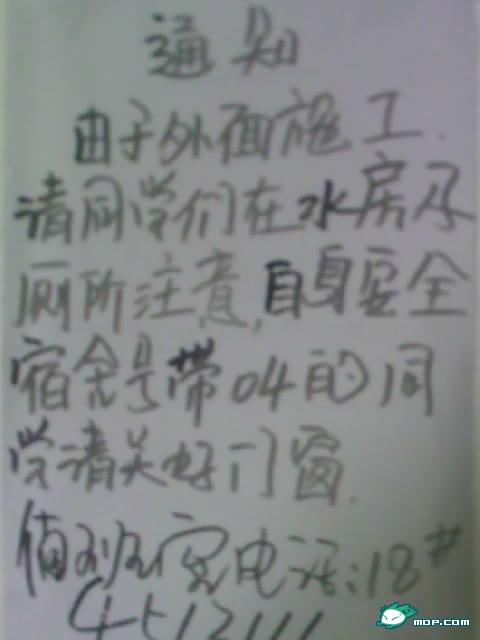 通知
由于外面施工.
请同学们在水房及
厕所注意,自身安全
宿舍号带04的同
学请关好门窗.
值班室电话:18#
4512111
MOP.COM